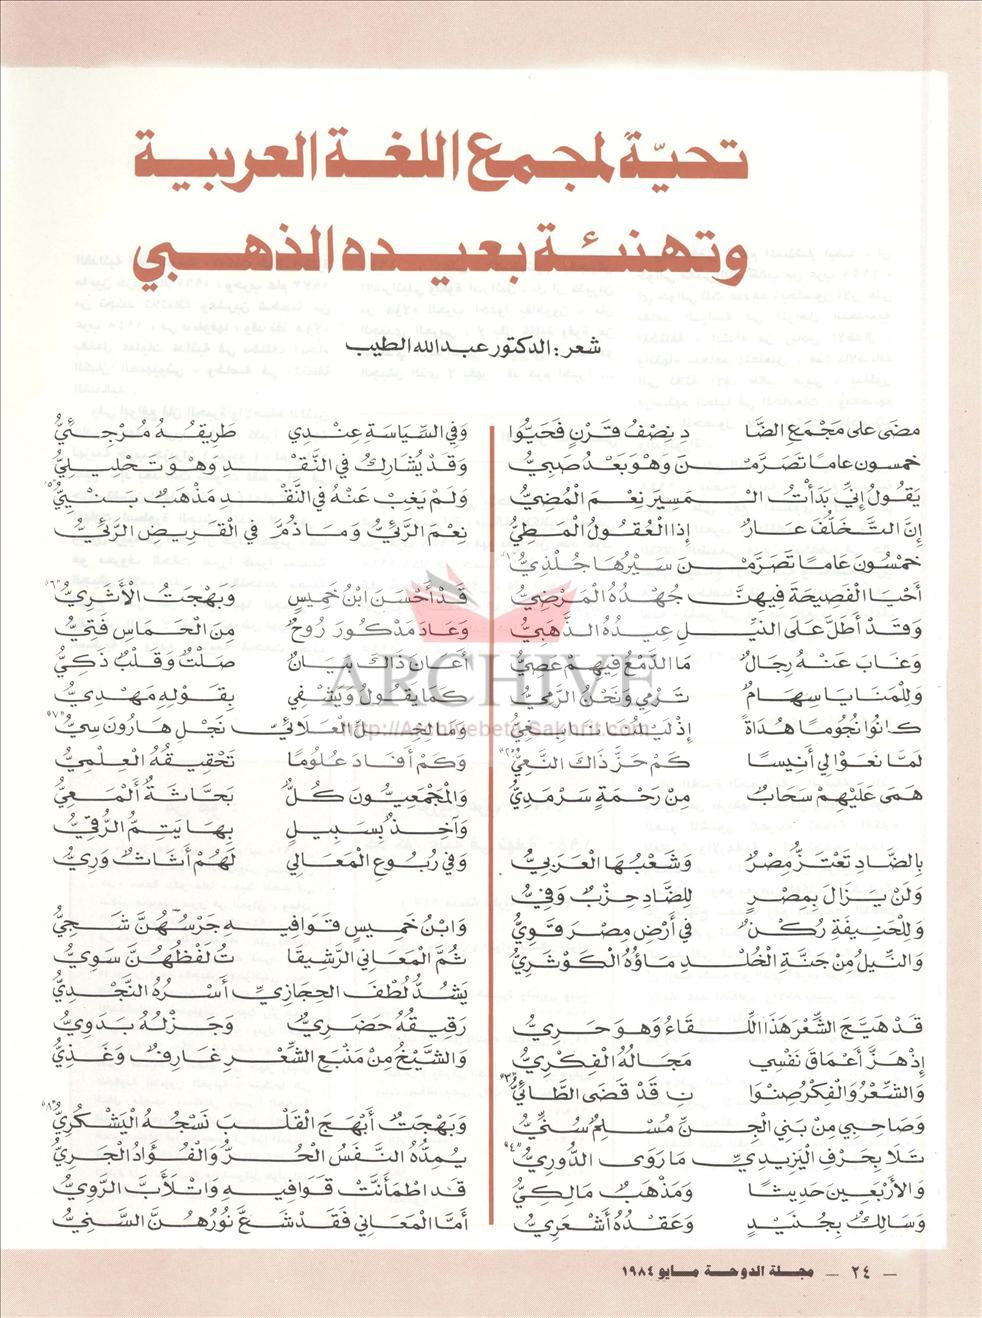 تحيّة لمجمع اللغة العربية
وتهنئة بعيده الذهبي
شعر: الدكتور عبد الله الطيب
مضى على مجمع الضَّا دِ نِصْفُ قَرْنٍ فَحَيُّوا
خمسون عاما تصرّمْنَ وَهْوَ بَعْدُ صَبِيُّ
يَقُولُ إِنِّي بَدَأْتُ الْمَسِيرَ نِعْمَ الْمُضِيُّ
إِنَّ التَّخَلُّفَ عَارٌ إِذَا الْعُقُولُ الْمَطِيُّ
خَمْسُونَ عَامًا تَصَرَّمْنَ سَيْرُهَا جُلْذِيُّ "١"
أَحْيَا الْفَصِيحَةَ فِيهِنَّ جُهْدُهُ الْمَرْضِيُّ
وَقَدْ أَطَلَّ عَلَى النِّيلِ عِيدُهُ الذَّهَبِيُّ
وَغَابَ عَنْهُ رِجَالٌ مَا الدَّمْعُ فِيهِمْ عَصِيُّ
وَلِلْمَنَايَا سِهَامٌ تَرْمِي وَنَحْنُ الرَّمِيُّ
كَانُوا نُجُومًا هُدَاةً إِذْ لَيْلُنَا
لَمَّا نَعَوْا لِي أَنِيسًا كَمْ حَزَّ ذَاكَ النَّعِيُّ "٢"
هَمَى عَلَيْهِمْ سَحَابٌ مِنْ رَحْمَةٍ سَرْمَدِيُّ
بِالضَّادِ تَعْتَزُّ مِصْرٌ وَشَعْبُهَا الْعَرَبِيُّ
وَلَنْ يَزَالَ بِمِصْرٍ لِلضَّادِ حِزْبٌ وَفِيُّ
وَلِلْحَنِيفَةِ رُكْنٌ فِي أَرْضِ مِصْرَ قَوِيُّ
وَالنِّيلُ مِنْ جَنَّةِ الْخُلْدِ مَاؤُهُ الْكَوْثَرِيُّ
قَدْ هَيَّجَ الشِّعْرَ هَذَا اللِّقَاءُ وَهْوَ حَرِيُّ
إِذْ هَزَّ أَعْمَاقَ نَفْسِي مَجَالُهُ الْفِكْرِيُّ
وَالشِّعْرُ وَالْفِكْرُ صِنْوَا نِ قَدْ قَضَى الطَّائِيُّ "٣"
وَصَاحِبِي مِنْ بَنِي الْجِنِّ مُسْلِمٌ سُنِّيُّ
تَلَا بِحَرْفِ الْيَزِيدِيِّ مَا رَوَى الدُّورِيُّ "٤"
وَالْأَرْبَعِينَ حَدِيثًا وَمَذْهَبٌ مَالِكِيُّ
وَسَالِكٌ بِجُنَيْدٍ وَعَقْدُهُ أَشْعَرِيُّ
وَفِي السِّيَاسَةِ عِنْدِي طَرِيقُهُ مُرْجِئِيُّ
وَقَدْ يُشَارِكُ فِي النَّقْدِ وَهْوَ تَحْلِيلِيُّ
وَلَمْ يَغِبْ عَنْهُ فِي النَّقْدِ مَذْهَبٌ بَنْيِيُّ "٥"
نِعْمَ الرَّئِيُّ وَمَا ذُمَّ فِي الْقَرِيضِ الرَّئِيُّ
قَدْ أَحْسَنَ ابْنُ خَمِيسٍ وَبَهْجَتُ الْأَثَرِيُّ "٦"
وَعَادَ مَدْكُورَ رُوحٌ مِنَ الْحَمَاسِ فَتِيُّ
أَعَانَ ذَاكَ بَيَانٌ صَلْتٌ وَقَلْبٌ ذَكِيُّ
كَمَا يَقُولُ وَيَشْفِي بِقَوْلِهِ مَهْدِيُّ
وَمَا لِخِلِّ الْعَلَائِيِّ نَجْلِ هَارُونَ سِيُّ "٧"
وَكَمْ أَفَادَ عُلُومًا تَحْقِيقُهُ الْعِلْمِيُّ
وَالْمَجْمَعِيُّونَ كُلٌّ بَحَّاثَةٌ أَلْمَعِيُّ
وَآخِذٌ بِسَبِيلٍ بِهَا يَتِمُّ الرُّقِيُّ
وَفِي رُبُوعِ الْمَعَالِي لَهُمْ أَثَاثٌ وَرِيُّ
وَابْنُ خَمِيسٍ قَوَافِيهِ جَرْسُهُنَّ شَجِيُّ
ثُمَّ الْمَعَانِي الرَّشِيقَاتُ لَفْظُهُنَّ سَوِيُّ
يَشُدُّ لُطْفَ الْحِجَازِيِّ أَسْرُهُ النَّجْدِيُّ
رَقِيقُهُ حَضَرِيٌّ وَجَزْلُهُ بَدَوِيُّ
وَالشَّيْخُ مِنْ مَنْبَعِ الشِّعْرِ غَارِفٌ وَغَذِيُّ
وَبَهْجَتٌ أَبْهَجَ الْقَلْبَ نَسْجُهُ الْيَشْكُرِيُّ "٨"
يُمِدُّهُ النَّفَسُ الْحُرُّ وَالْفُؤَادُ الْجَرِيُّ
قَدِ اطْمَأَنَّتْ قَوَافِيهِ وَاتْلَأَبَّ الرَّوِيُّ
أَمَّا الْمَعَانِي فَقَدْ شَعَّ نُورُهُنَّ السَّنِيُّ
ARCHIVE
— ٢٤ — مجلة الدوحة مايو ١٩٨٤